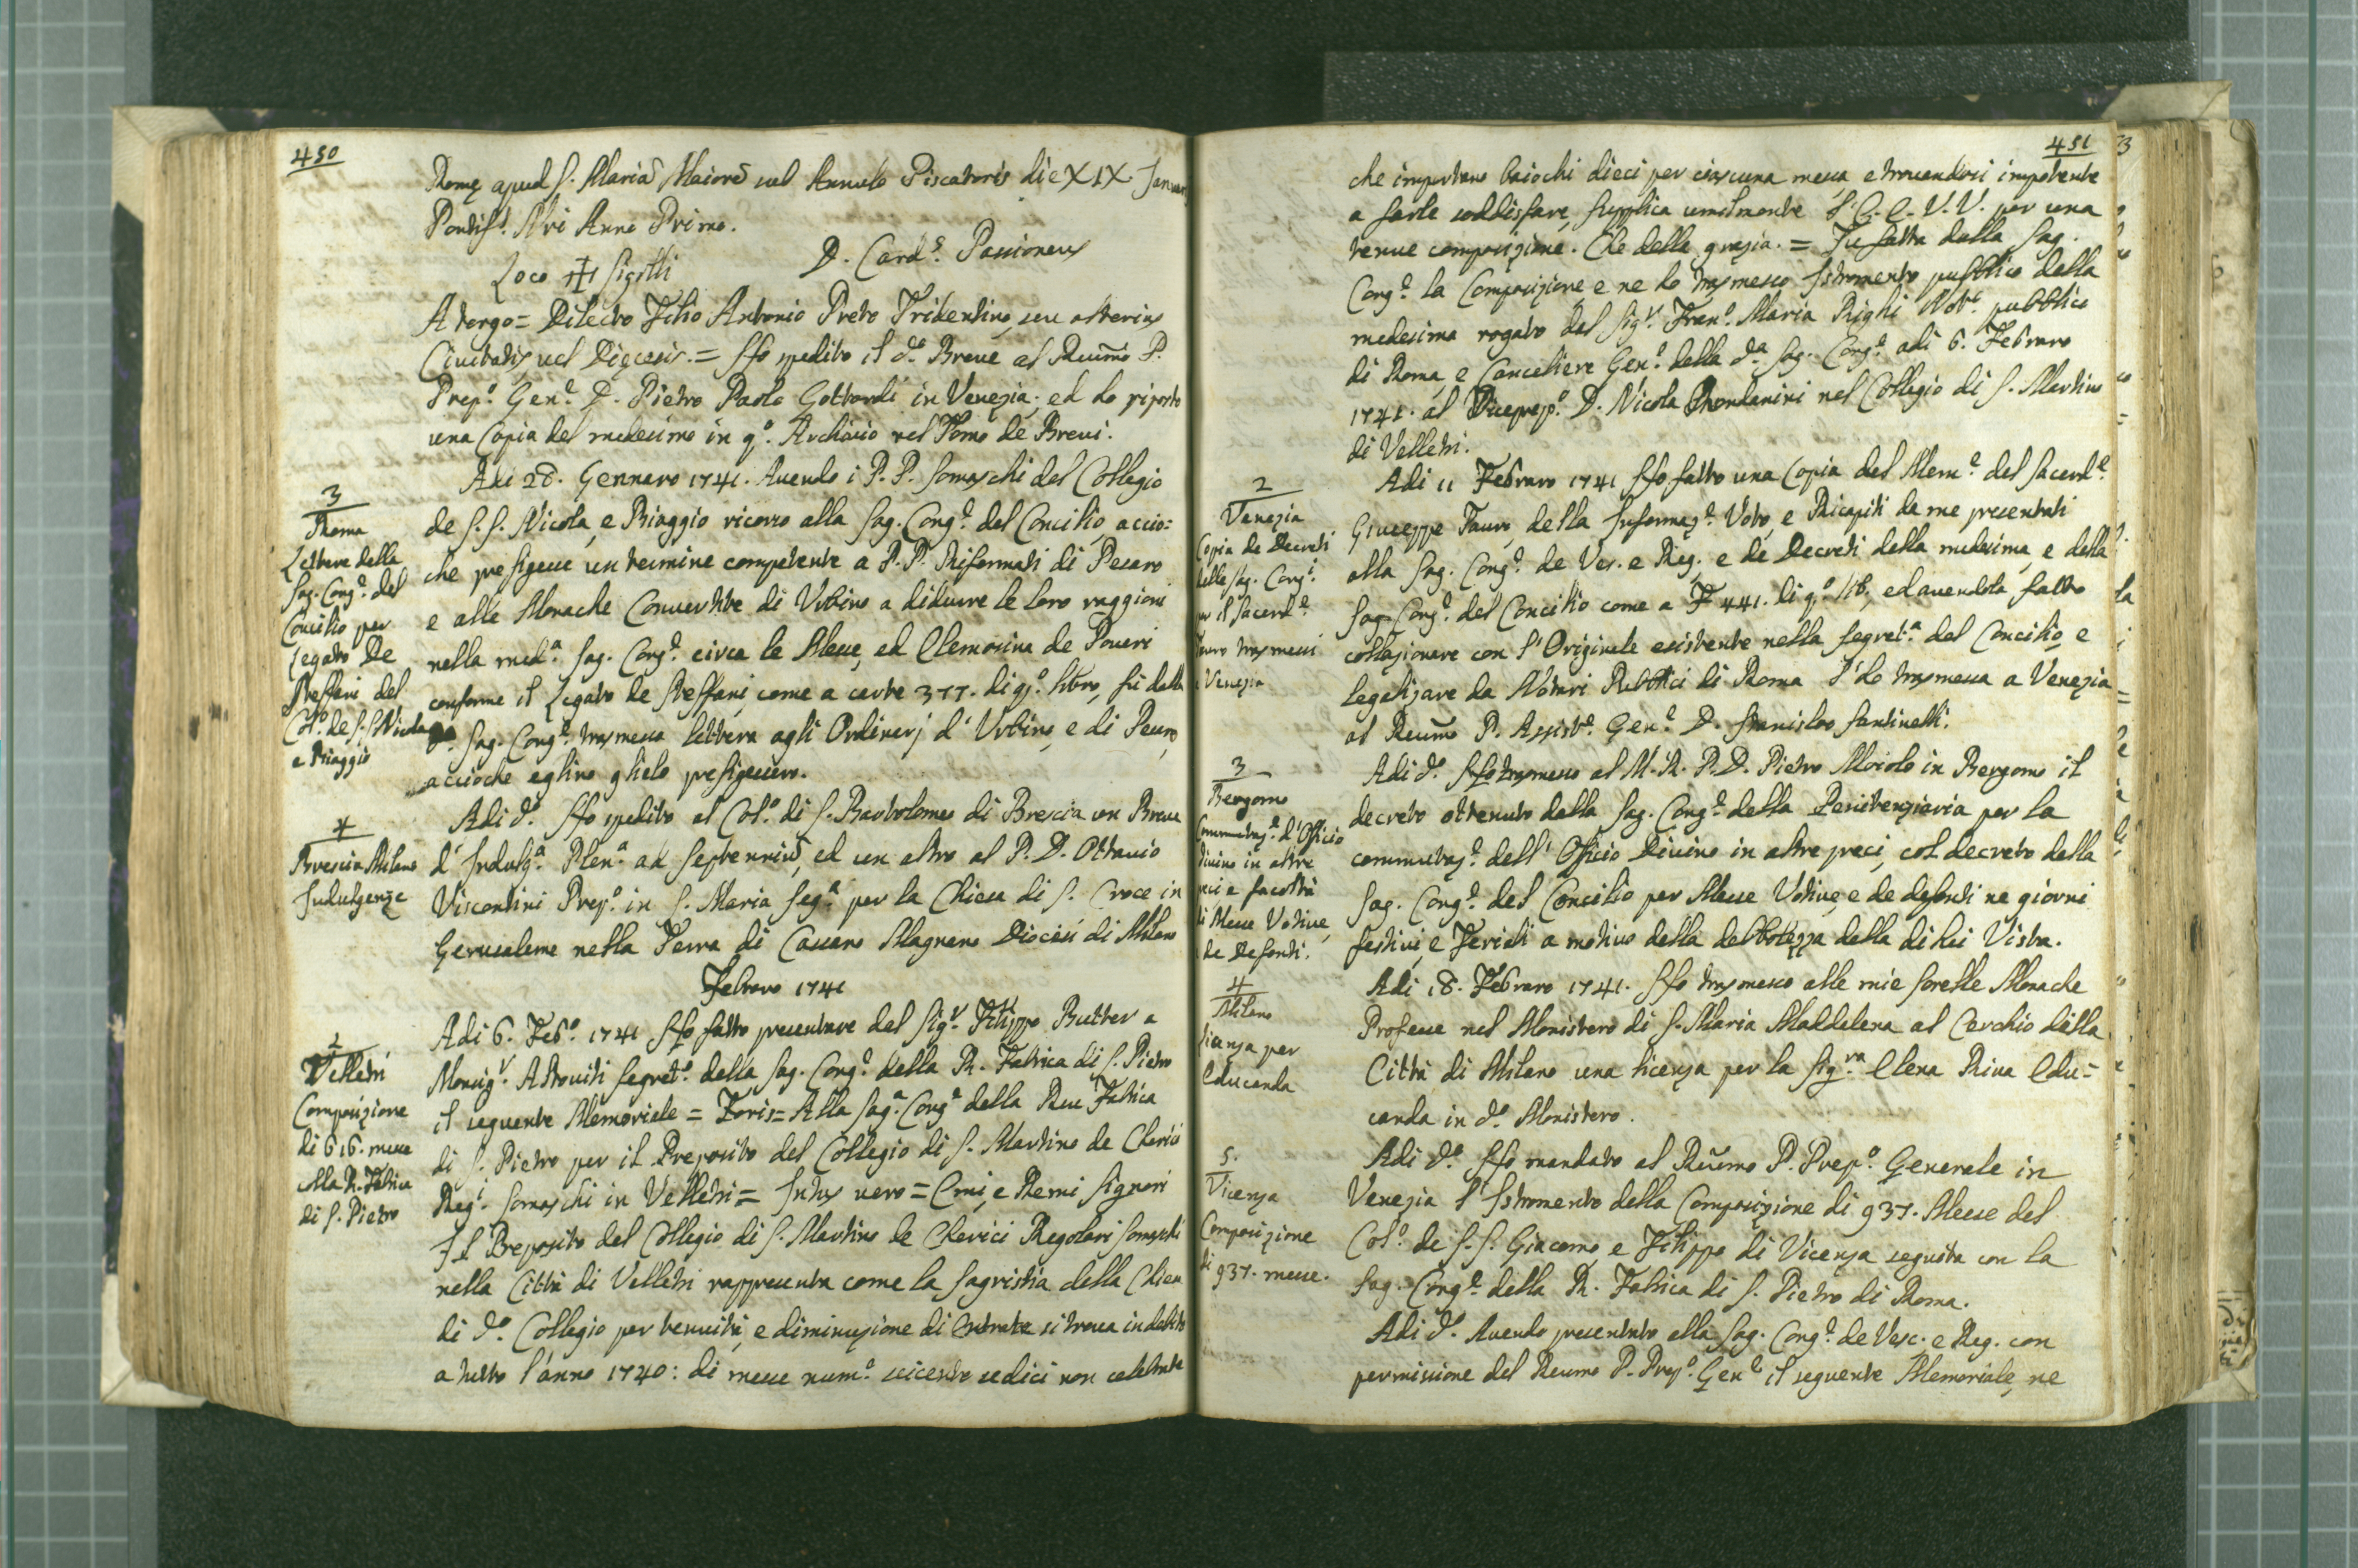 450
Romę apud S. Mariã Maiorẽ sub Annulo Piscatoris die XIX. Januar
Pontif.s Nri Anno Primo.
Loco + Sigilli D. Card.s Passioneus
A tergo = Dilecto Filio Antonio Preto Tridentine, seu alterius
Civitatis, vel Dięcesis. = Ho spedito il d.o Breve al Reũmo P.
Prep.o Gen.e D. Pietro Paolo Gottardi in Venezia; ed ho riposto
una Copia del medesimo in q.o Archivio nel Tomo de Brevi.
3
Roma
Lettere della
Sag. Cong.e del
Concilio per
Legato De
Steffani del
Col.o de S.S. Nicola
e Biaggio
Adi 28. Gennaro 1741. Avendo i P.P. Somaschi del Collegio
de S.S. Nicola, e Biaggio ricorso alla Sag. Cong.e del Concilio, accio=
che prefigesse un termine competente a P.P. Riformati di Pesaro
e alle Monache Convertite di Urbino a didurre le loro raggioni
nella med.a Sag. Cong.e circa le Messe, ed Elemosina de Poveri
conforme il Legato de Steffani, come a carte 377. di q.o libro, fù dalla
d.a Sag. Cong.e trasmessa lettera agli Ordinarj d'Urbino, e di Pesaro,
accioche eglino glielo prefigessero.
4
Brescia Milano
Indulgenze
Adi d.o Ho spedito al Col.o di S. Bartolomeo di Brescia un Breve
d'Indulg.a Plen.a ad Septenniũ, ed un altro al P. D. Ottavio
Viscontini Prep.o in S. Maria Seg.a per la Chiesa di S. Croce in
Gerusaleme nella Terra di Cassano Magnano Diocesi di Milano
Febraro 1741
1
Velletri
Composizione
di 616. messe
alla R. Fabrica
di S. Pietro
Adi 6. Feb.o 1741 Ho fatto presentare dal Sig.r Filippo Butter a
Monsig.r Altoviti Segret.o della Sag. Cong.e della R. Fabrica di S. Pietro
il seguente Memoriale = Foris = Alla Sag.a Cong.e della Rev. Fabrica
di S. Pietro per il Preposito del Collegio di S. Martino de Cherici
Reg.i Somaschi in Velletri = Intus vero = Emi, e Rmi Signori
Il Preposito del Collegio di S. Martino de Cherici Regolari Somaschi
nella Città di Velletri rappresenta come la Sagristia della Chiesa
di d.o Collegio per tenuità, e diminuzione di entrate si trova in debito
a tutto l'anno 1740: di messe num.o seicento sedici non celebrate
451
che importano baiochi dieci per ciascuna messa, e trovandosi impotente
a farle soddisfare, supplica umilmente l'E. E. V.V. per una
tenue composizione. Che della grazia. = Fu fatta dalla Sag.
Cong.e la Composizione, e ne ho trasmesso Istromento publico della
medesima rogato dal Sig.r Fran.o Maria Righi Not.o pubblico
di Roma, e Canceliere Gen.e della d.a Sag. Cong.e adi 6. Febraro
1741. al Viceprep.o D. Nicola Rondanini nel Collegio di S. Martino
di Velletri.
2
Venezia
Copia de Decreti
delle Sag. Cong.i
per il Sacerd.e
Tauro trasmessi
a Venezia
Adi 11 Febraro 1741 Ho fatto una Copia del Mem.e del Sacerd.e
Giuseppe Tauro, della Informaz.e Voto, e Ricapiti da me presentati
alla Sag. Cong.e de Ves. e Reg. e de Decreti della medesima, e della
Sag. Cong.e del Concilio come a F 441. di q.o lib., ed avendola fatto
collazionare con l'Originale esistente nella Segret.a del Concilio, e
legalizare da Notari Publici di Roma l'ho trasmessa a Venezia
al Reũmo P. Assist.e Gen.e D. Stanislao Santinelli.
3
Bergomo
Commutaz.e d'Officio
divino in altre
preci e facoltà
di Messe Votive,
e de Defonti.
Adi d.o Ho trasmesso al M. R. P. D. Pietro Moioli in Bergomo il
decreto ottenuto dalla Sag. Cong.e della Penitenziaria per la
commutaz.e dell'Officio Divino in altre preci, col decreto della
Sag. Cong.e del Concilio per Messe Votive, e de defonti ne giorni
festivi, e Feriali a motivo della debolezza della di lui Vista.
4
Milano
licenza per
Educanda
Adi 18. Febraro 1741. Ho trasmesso alle mie sorelle Monache
Professe nel Monistero di S. Maria Maddalena al Cerchio della
Città di Milano una licenza per la Sig.ra Elena Riva Edu=
canda in d.o Monistero.
5.
Vicenza
Composizione
di 937. messe.
Adi d.o Ho mandato al Reũmo P. Prep.o Generale in
Venezia l'Istromento della Composizione di 937. Messe del
Col.o de S.S. Giacomo, e Filippo di Vicenza seguita con la
Sag. Cong.e della R. Fabrica di S. Pietro di Roma.
Adi d.o Avendo presentato alla Sag. Cong.e de Vesc. e Reg. con
permissione del Reumo P. Prep.o Gen.e il seguente Memoriale, ne